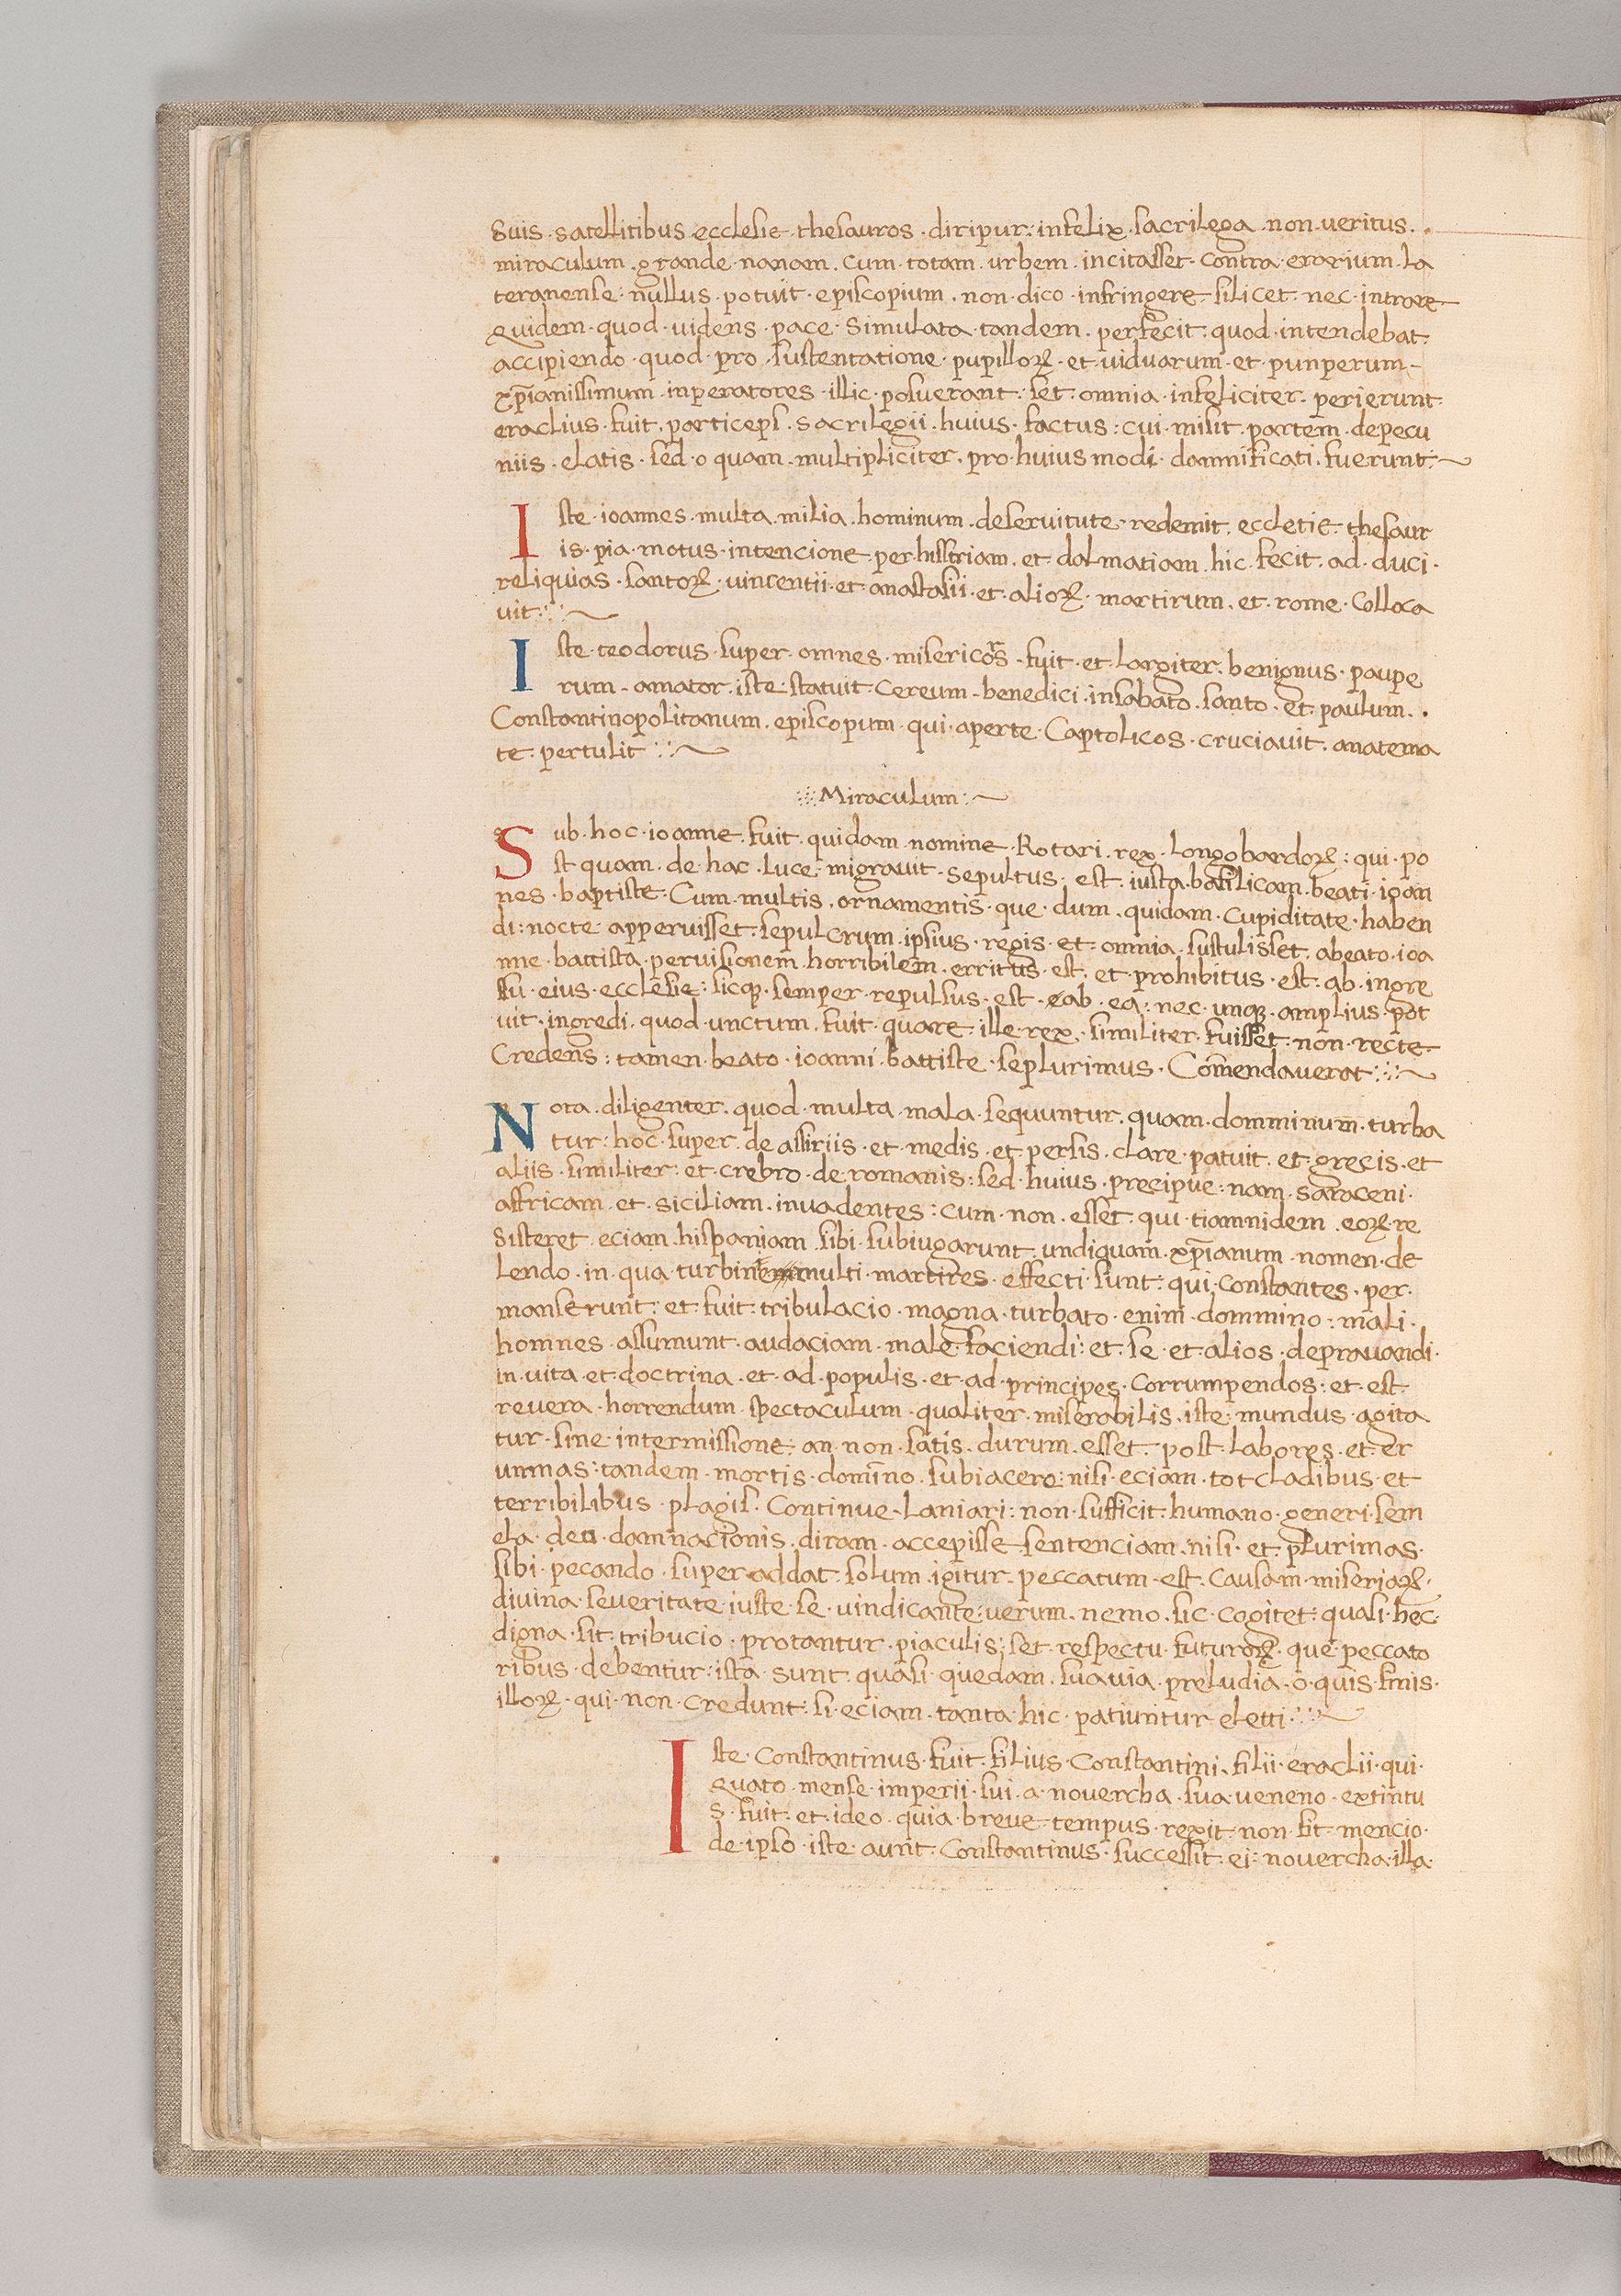 Suis · satellitibus ecclesie · thesauros · diripuit : infelix · sacrilega · non · veritus ·
miraculum · grande · nanam · cum · totam · urbem · incitasset · contra · erarium · la
teranense · nullus · potuit · episcopium · non · dico · infringere · silicet · nec · introire
quidem · quod · uidens · pace · simulata · tandem · perfecit · quod · intendebat ·
accipiendo · quod · pro · sustentatione · pupilloꝝ · et · viduarum · et · punperum -
xp̅ianissimum · inperatores · illic · posuerant · set · omnia · infeliciter · perierunt ·
eraclius · fuit · particeps · sacrilegii · huius · factus : cui · misit · partem · de pecu
niis · elatis · sed · o quam · multipliciter · pro · huius modi · damnificati · fuerunt :~
Iste · ioannes · multa · milia · hominum · de servitute · redemit · ecclesie · thesaur
is · pia · motus · intencione · per histriam · et · dalmatiam · hic · fecit · ad · duci ·
reliquias · santoꝝ · vincentii · et · anastasii · et · alioꝝ · martirum · et · rome · colloca
vit : : ~
Iste · teodorus · super · omnes · misericors · fuit · et · largiter · benignus · paupe
rum · amator · iste · statuit · cereum · benedici · in sabato · santo · et · paulum ·
Constantinopolitanum · episcopum · qui · aperte · Captolicos · cruciavit · anatema
te · pertulit : : ~
Miraculum : ~
Sub · hoc · ioanne · fuit · quidam · nomine · Rotari · rex · longobardoꝝ : qui · po
st quam · de · hac · luce · migravit · sepultus · est · iusta · basilicam · beati · ioan
nes · baptiste · Cum · multis · ornamentis · que · dum · quidam · cupiditate · haben
di : nocte · appervisset · sepulcrum · ipsius · regis · et · omnia · sustulisset · a beato · ioa
nne · battista · per visionem · horribilem · erritus · est · et · prohibitus · est · ab · ingre
su · eius · ecclesie : sicqꝫ · semper · repulsus · est · ab · ea : nec · unqꝫ · amplius · pot
vit · ingredi · quod · unctum · fuit · quare · ille · rex · similiter · fuisset · non · recte ·
Credens : tamen · beato · ioanni · battiste · se plurimus · Com̅endaverat : : ~
Nota · diligenter · quod · multa · mala · sequuntur · quam · domminum · turba
tur : hoc · super · de assiriis · et · medis · et persis · clare · patuit · et · grecis · et
aliis · similiter · et · crebro · de · romanis : sed · huius · precipue : nam · saraceni ·
affricam · et · siciliam · invadentes : cum · non · esset · qui · tiamnidem · eoꝝ · re
sisteret · eciam · hispaniam · sibi · subiugarunt · undiquam · xp̅ianum · nomen · de
lendo · in · qua · turbine multi · martires · effecti · sunt : qui · constantes · per ·
manserunt : et · fuit · tribulacio · magna · turbato · enim · dommino : mali ·
homnes · assumunt · audaciam · male · faciendi : et · se · et · alios · depravandi ·
in · vita · et · doctrina · et · ad · populis · et · ad · principes · corrumpendos : et · est ·
revera · horrendum · spectaculum · qualiter · miserabilis · iste · mundus · agita
tur · sine · intermissione : an · non · satis · durum · esset · post · labores · et · er
umnas : tandem · mortis · domino · subiacero : nisi · eciam · tot cladibus · et
terribilibus · plagis · Continue · laniari : non · sufficit · humano · generi · sem
el a · deo · damnacionis · diram · accepisse · sentenciam · nisi · et · plurimas ·
sibi · pecando · super addat · solum · igitur · peccatum · est · causam · miseriaꝝ ·
divina · severitate · iuste · se · vindicante : verum · nemo · sic · cogitet · quasi · hec ·
digna · sit · tribucio · protantur · piaculis : set · respectu · futuroꝝ · que · peccato
ribus · debentur : ista · sunt · quasi · quedam · suavia · preludia · o · quis · finis ·
illoꝝ · qui · non · credunt : si · eciam · tanta · hic · patiuntur eletti : : ~
Iste · Constantinus · fuit · filius · Constantini · filii · eraclii · qui ·
quato · mense · imperii · sui · a · novercha · sua · veneno · extintu
s · fuit · et · ideo · quia · breve · tempus · rexit · non · fit · mencio ·
de · ipso · iste · aunt · Constantinus · successit · ei : novercha · illa ·